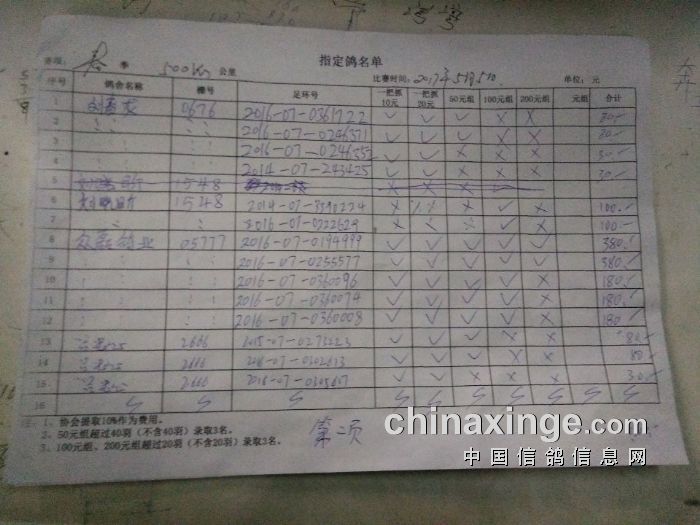 指定鸽名单
赛项: 春 季 500Km 公里 比赛时间: 2017年5月5日 单位: 元
序号 鸽舍名称 棚号 足环号 一把抓10元 一把抓20元 50元组 100元组 200元组 元组 合计
1 0676 2016-07-0361722 ✓ ✓ ✓ × × 80
2 2016-07-0246371 ✓ ✓ ✓ × × 80
3 2016-07-0246355 ✓ ✓ × × × 30
4 2014-07-243425 ✓ ✓ × × × 30
5 1548
6 1548 2014-07-3390224 × × ✓ × 100
7 2016-07-0222629 × × × ✓ × 100
8 众磊鸽业 05777 2016-07-0194999 ✓ ✓ ✓ ✓ ✓ 380
9 2016-07-0255577 ✓ ✓ ✓ ✓ ✓ 380
10 2016-07-0360096 ✓ ✓ ✓ ✓ × 180
11 2016-07-0360074 ✓ ✓ ✓ ✓ × 180
12 2016-07-0360008 ✓ ✓ ✓ ✓ × 180
13 2666 2015-07-0273223 ✓ ✓ ✓ × × 80
14 2666 2016-07-0302613 ✓ ✓ ✓ × × 80
15 2666 2016-07-0305617 ✓ ✓ × × × 30
16
1、协会提取10%作为费用。
2、50元组超过40羽（不含40羽）录取3名。
3、100元组、200元组超过20羽（不含20羽）录取3名。
第二页
chinaxinge.com
中国信鸽信息网